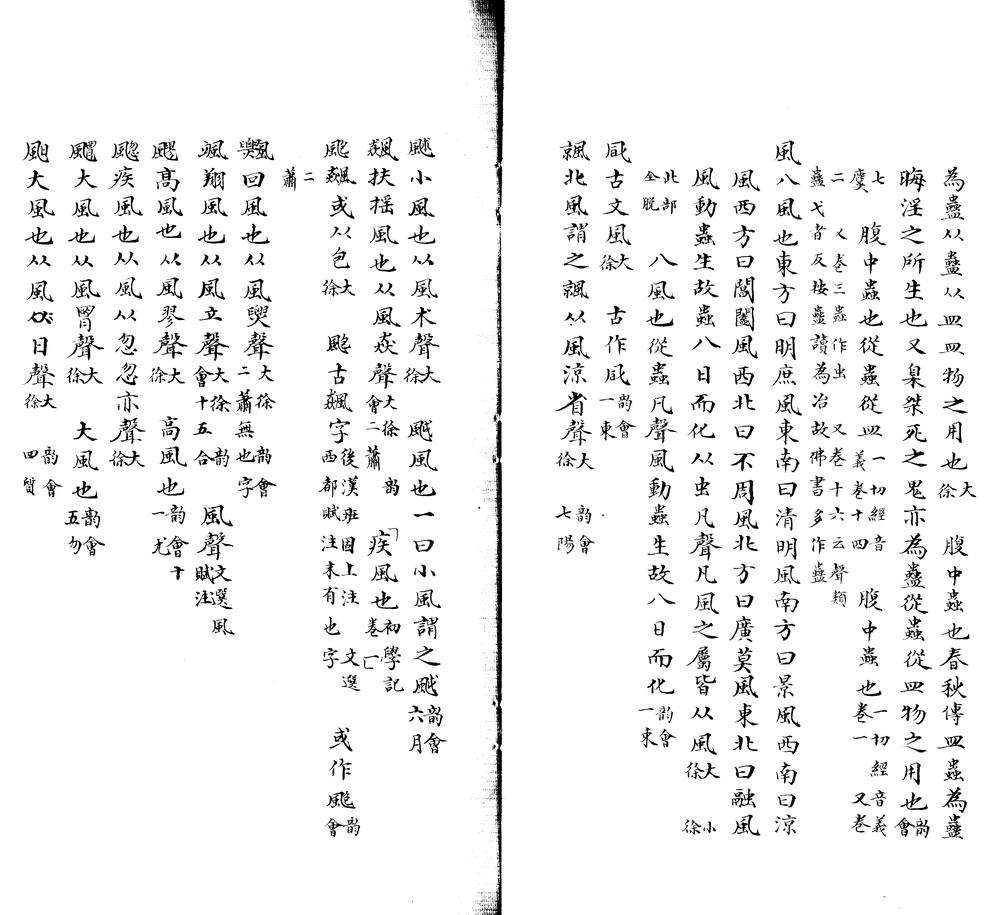 為蠱从蠱从皿皿物之用也大徐　腹中蟲也春秋傳皿蟲為蠱
晦淫之所生也又臬桀死之鬼亦為蠱從蟲從皿物之用也韵會
七廙　腹中蟲也從蟲從皿一切經音義卷十四　腹中蟲也一切經音義卷一又卷
二　又卷三蟲作虫又卷十六云聲類
蠱弋者反按蠱讀為冶故佛書多作蠱
風八風也東方曰明庶風東南曰清明風南方曰景風西南曰涼
風西方曰閶闔風西北曰不周風北方曰廣莫風東北曰融風
風動蟲生故蟲八日而化从虫凡聲凡風之屬皆从風大徐　小徐
此部全脱　八風也從蟲凡聲風動蟲生故八日而化韵會一東
凬古文風大徐　古作凬韵會一東
飆北風謂之飆从風涼省聲大徐　韵會七陽
颫小風也从風朮聲大徐　颫風也一曰小風謂之颫韵會六月
飆扶摇風也从風猋聲大徐　韵會二蕭　疾風也初學記卷一
颮飆或从包大徐　颮古飆字後漢班固西都賦注　上注未有也字　文選　或作颮韵會
二蕭
飄回風也从風㷼聲大徐　韵會二蕭無也字
颯翔風也从風立聲大徐　韵會十五合　風聲文選風賦注
飂高風也从風翏聲大徐　高風也韵會十一尤
颮疾風也从風从忽忽亦聲大徐
䬑大風也从風胃聲大徐　大風也韵會五勿
䫻大風也从風日聲大徐　韵會四質